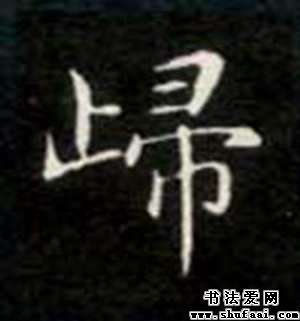 㱕
书法爱网
www.shufaai.com